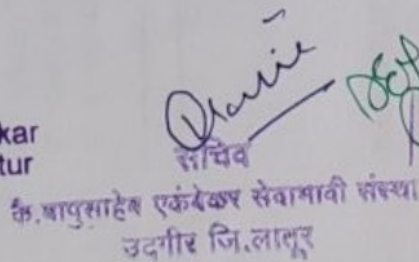 kar
tur
सचिव
कै.बापुसाहेब एकंबेकर सेवाभावी संस्था
उदगीर जि.लातूर